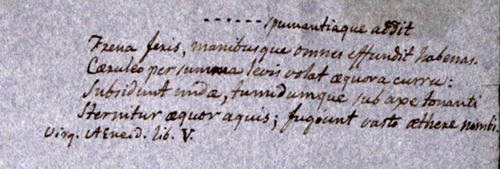 ------spumantiaque addit
Frena feris, manibusque omnes effundit habenas.
Cæruleo per summa levis volat æquora curru:
Subsidunt undæ, tumidumque sub axe tonanti
Sternitur æquor aquis; fugiunt vasto æthere nimbi.
Virg. AEneid. lib. V.